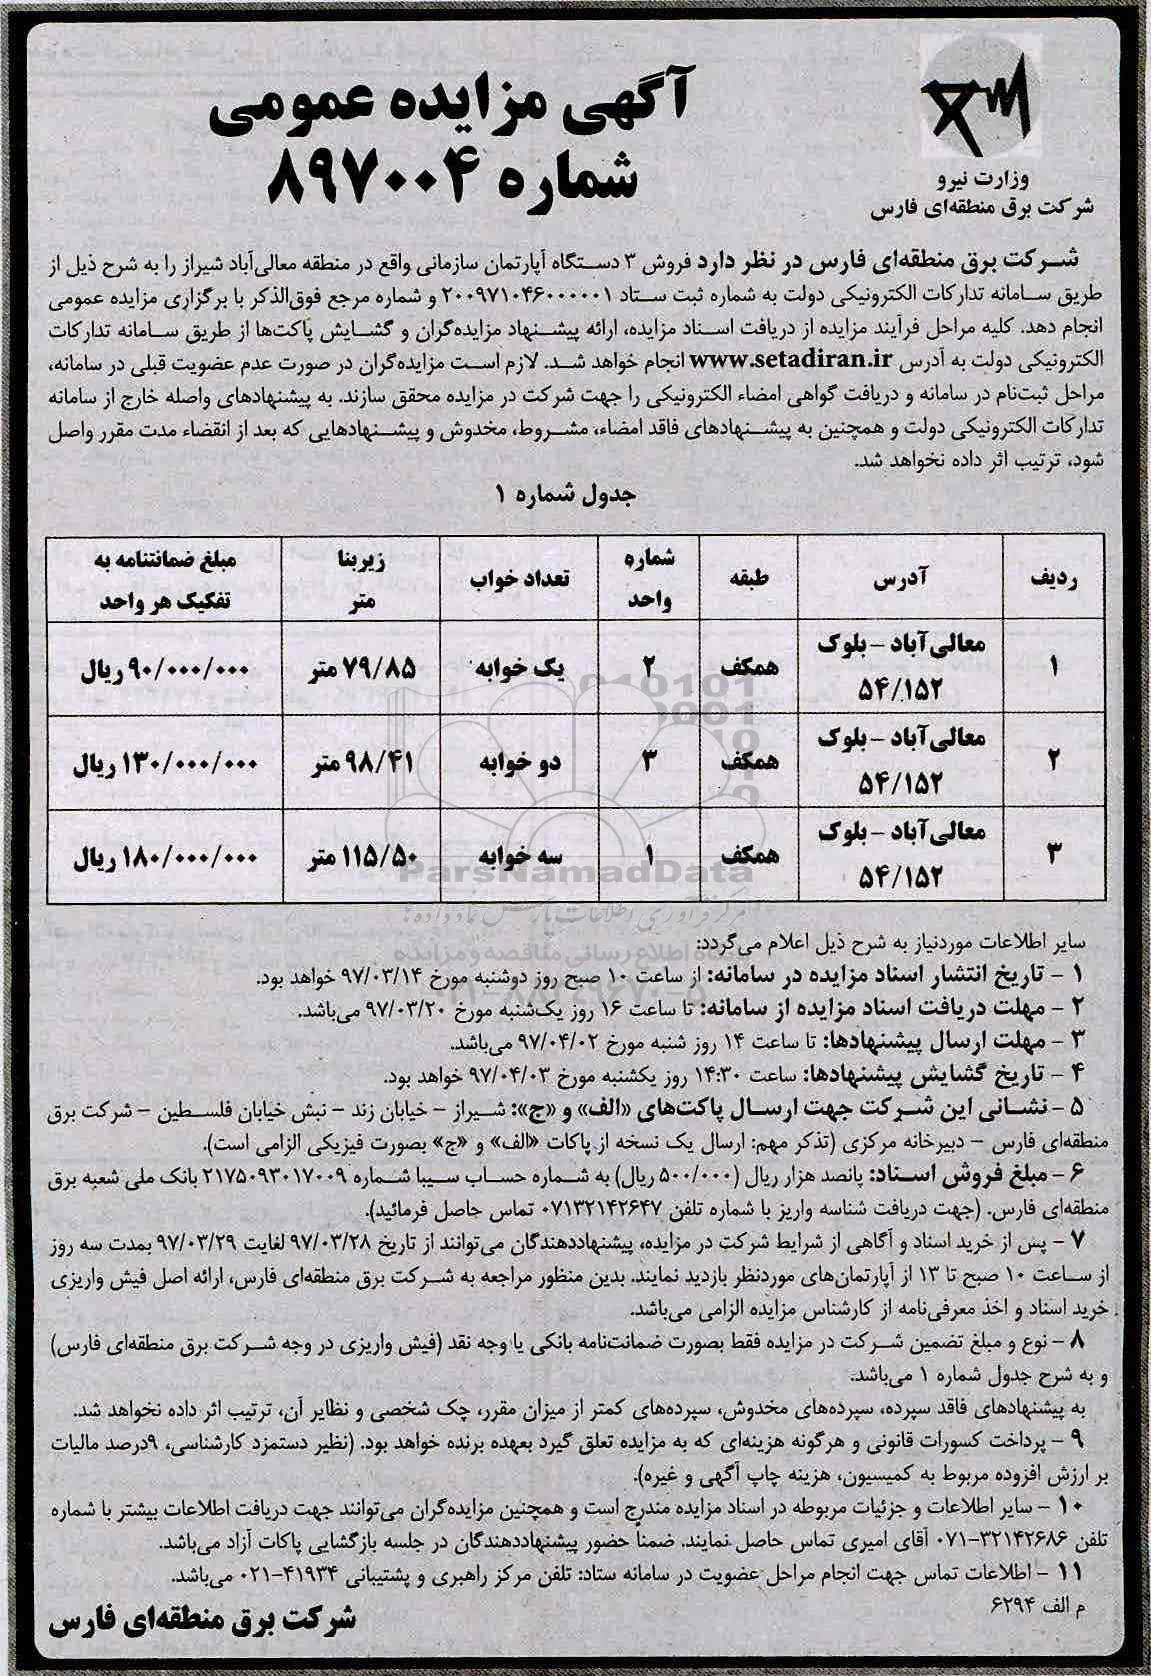 وزارت نیرو
شرکت برق منطقه‌ای فارس
آگهی مزایده عمومی
شماره ۸۹۷۰۰۴
شرکت برق منطقه‌ای فارس در نظر دارد فروش ۳ دستگاه آپارتمان سازمانی واقع در منطقه معالی‌آباد شیراز را به شرح ذیل از
طریق سامانه تدارکات الکترونیکی دولت به شماره ثبت ستاد ۲۰۰۹۷۱۰۴۶۰۰۰۰۰۱ و شماره مرجع فوق‌الذکر با برگزاری مزایده عمومی
انجام دهد. کلیه مراحل فرآیند مزایده از دریافت اسناد مزایده، ارائه پیشنهاد مزایده‌گران و گشایش پاکت‌ها از طریق سامانه تدارکات
الکترونیکی دولت به آدرس www.setadiran.ir انجام خواهد شد. لازم است مزایده‌گران در صورت عدم عضویت قبلی در سامانه،
مراحل ثبت‌نام در سامانه و دریافت گواهی امضاء الکترونیکی را جهت شرکت در مزایده محقق سازند. به پیشنهادهای واصله خارج از سامانه
تدارکات الکترونیکی دولت و همچنین به پیشنهادهای فاقد امضاء، مشروط، مخدوش و پیشنهادهایی که بعد از انقضاء مدت مقرر واصل
شود، ترتیب اثر داده نخواهد شد.
جدول شماره ۱
ردیف آدرس طبقه شماره واحد تعداد خواب زیربنا متر مبلغ ضمانتنامه به تفکیک هر واحد
۱ معالی‌آباد – بلوک ۵۴/۱۵۲ همکف ۲ یک خوابه ۷۹/۸۵ متر ۹۰/۰۰۰/۰۰۰ ریال
۲ معالی‌آباد – بلوک ۵۴/۱۵۲ همکف ۳ دو خوابه ۹۸/۴۱ متر ۱۳۰/۰۰۰/۰۰۰ ریال
۳ معالی‌آباد – بلوک ۵۴/۱۵۲ همکف ۱ سه خوابه ۱۱۵/۵۰ متر ۱۸۰/۰۰۰/۰۰۰ ریال
ParsNamadData
سایر اطلاعات موردنیاز به شرح ذیل اعلام می‌گردد:
۱ - تاریخ انتشار اسناد مزایده در سامانه: از ساعت ۱۰ صبح روز دوشنبه مورخ ۹۷/۰۳/۱۴ خواهد بود.
۲ - مهلت دریافت اسناد مزایده از سامانه: تا ساعت ۱۶ روز یک‌شنبه مورخ ۹۷/۰۳/۲۰ می‌باشد.
۳ - مهلت ارسال پیشنهادها: تا ساعت ۱۴ روز شنبه مورخ ۹۷/۰۴/۰۲ می‌باشد.
۴ - تاریخ گشایش پیشنهادها: ساعت ۱۴:۳۰ روز یکشنبه مورخ ۹۷/۰۴/۰۳ خواهد بود.
۵ - نشانی این شرکت جهت ارسال پاکت‌های «الف» و «ج»: شیراز – خیابان زند – نبش خیابان فلسطین – شرکت برق
منطقه‌ای فارس – دبیرخانه مرکزی (تذکر مهم: ارسال یک نسخه از پاکات «الف» و «ج» بصورت فیزیکی الزامی است).
۶ - مبلغ فروش اسناد: پانصد هزار ریال (۵۰۰/۰۰۰ ریال) به شماره حساب سیبا شماره ۲۱۷۵۰۹۳۰۱۷۰۰۹ بانک ملی شعبه برق
منطقه‌ای فارس. (جهت دریافت شناسه واریز با شماره تلفن ۰۷۱۳۲۱۴۲۶۴۷ تماس حاصل فرمائید).
۷ - پس از خرید اسناد و آگاهی از شرایط شرکت در مزایده، پیشنهاددهندگان می‌توانند از تاریخ ۹۷/۰۳/۲۸ لغایت ۹۷/۰۳/۲۹ بمدت سه روز
از ساعت ۱۰ صبح تا ۱۳ از آپارتمان‌های موردنظر بازدید نمایند. بدین منظور مراجعه به شرکت برق منطقه‌ای فارس، ارائه اصل فیش واریزی
خرید اسناد و اخذ معرفی‌نامه از کارشناس مزایده الزامی می‌باشد.
۸ - نوع و مبلغ تضمین شرکت در مزایده فقط بصورت ضمانت‌نامه بانکی یا وجه نقد (فیش واریزی در وجه شرکت برق منطقه‌ای فارس)
و به شرح جدول شماره ۱ می‌باشد.
به پیشنهادهای فاقد سپرده، سپرده‌های مخدوش، سپرده‌های کمتر از میزان مقرر، چک شخصی و نظایر آن، ترتیب اثر داده نخواهد شد.
۹ - پرداخت کسورات قانونی و هرگونه هزینه‌ای که به مزایده تعلق گیرد بعهده برنده خواهد بود. (نظیر دستمزد کارشناسی، ۹درصد مالیات
بر ارزش افزوده مربوط به کمیسیون، هزینه چاپ آگهی و غیره).
۱۰ - سایر اطلاعات و جزئیات مربوطه در اسناد مزایده مندرج است و همچنین مزایده‌گران می‌توانند جهت دریافت اطلاعات بیشتر با شماره
تلفن ۳۲۱۴۲۶۸۶-۰۷۱ آقای امیری تماس حاصل نمایند. ضمناً حضور پیشنهاددهندگان در جلسه بازگشایی پاکات آزاد می‌باشد.
۱۱ - اطلاعات تماس جهت انجام مراحل عضویت در سامانه ستاد: تلفن مرکز راهبری و پشتیبانی ۴۱۹۳۴-۰۲۱ می‌باشد.
م الف ۶۲۹۴
شرکت برق منطقه‌ای فارس